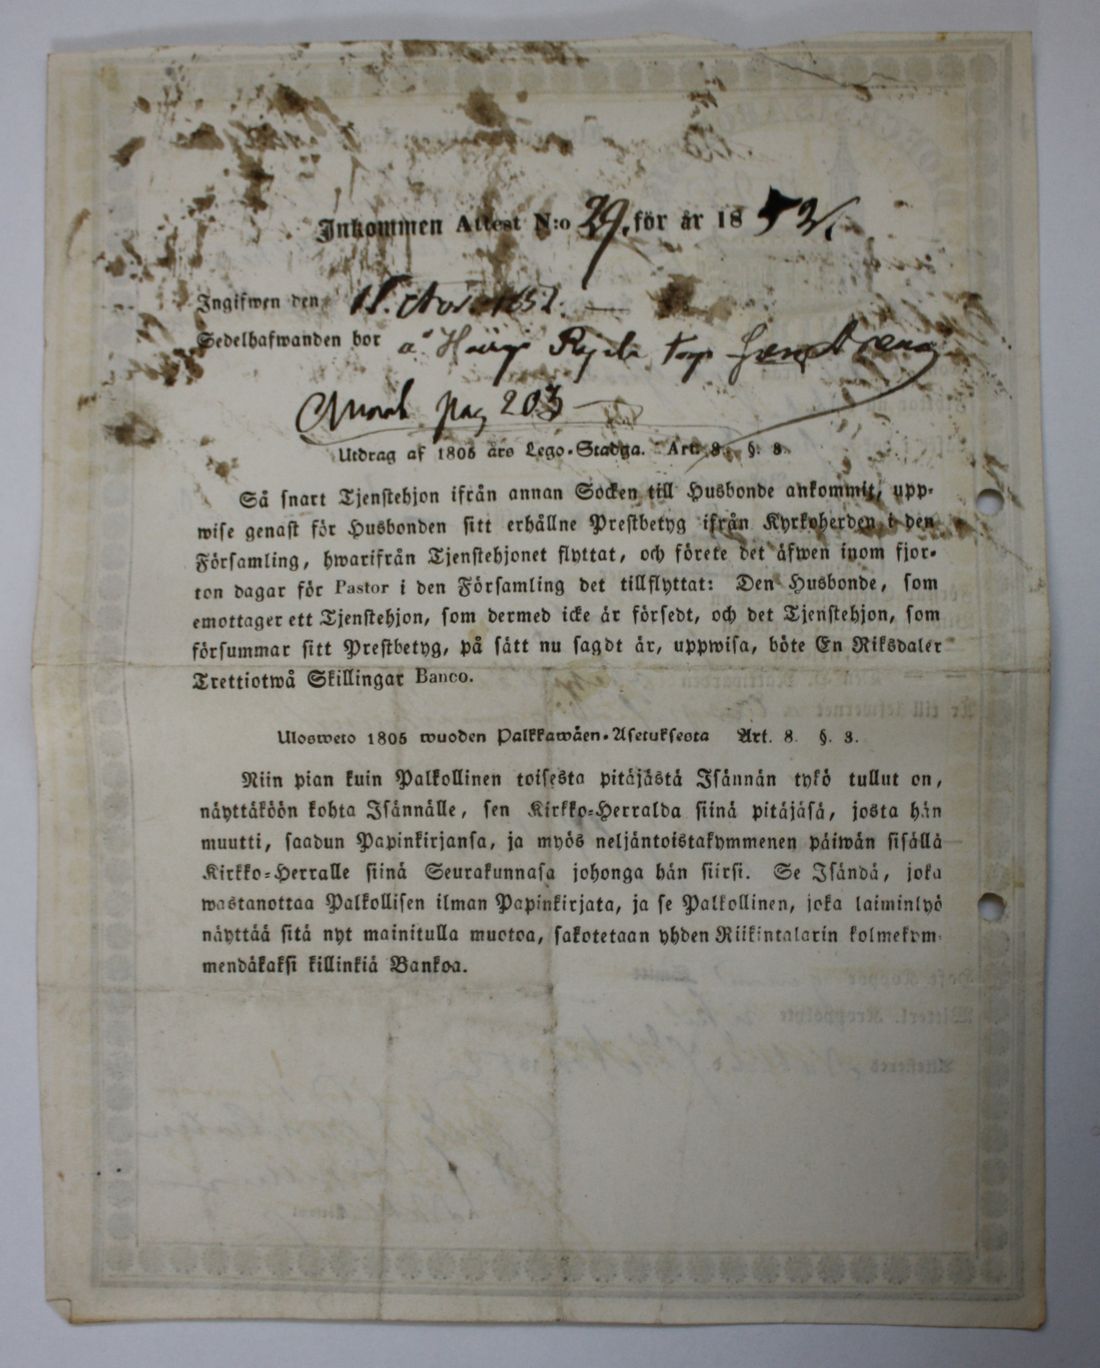 Inkommen Attest N:o 29. för år 1852.
Ingifwen den 15. Nov. 1852.
Sedelhafwanden bor å
pag 203
Utdrag af 1805 års Lego-Stadga. Art. 8. §. 3.
Så snart Tjenstehjon ifrån annan Socken till Husbonde ankommit, upp-
wise genast för Husbonden sitt erhållne Prestbetyg ifrån Kyrkoherden i den
Församling, hwarifrån Tjenstehjonet flyttat, och förete det äfwen inom fjor-
ton dagar för Pastor i den Församling det tillflyttat: Den Husbonde, som
emottager ett Tjenstehjon, som dermed icke är försedt, och det Tjenstehjon, som
försummar sitt Prestbetyg, på sätt nu sagdt är, uppwisa, böte En Riksdaler
Trettiotwå Skillingar Banco.
Ulosweto 1805 wuoden Palkkawäen-Asetuksesta Art. 8. §. 3.
Niin pian kuin Palkollinen toisesta pitäjästä Isännän tykö tullut on,
näyttäköön kohta Isännälle, sen Kirkko-Herralda siinä pitäjäsä, josta hän
muutti, saadun Papinkirjansa, ja myös neljäntoistakymmenen päiwän sisällä
Kirkko-Herralle siinä Seurakunnasa johonga hän siirsi. Se Isändä, joka
wastanottaa Palkollisen ilman Papinkirjata, ja se Palkollinen, joka laiminlyö
näyttää sitä nyt mainitulla muotoa, sakotetaan yhden Riikintalarin kolmekym-
mendäkaksi killinkiä Bankoa.